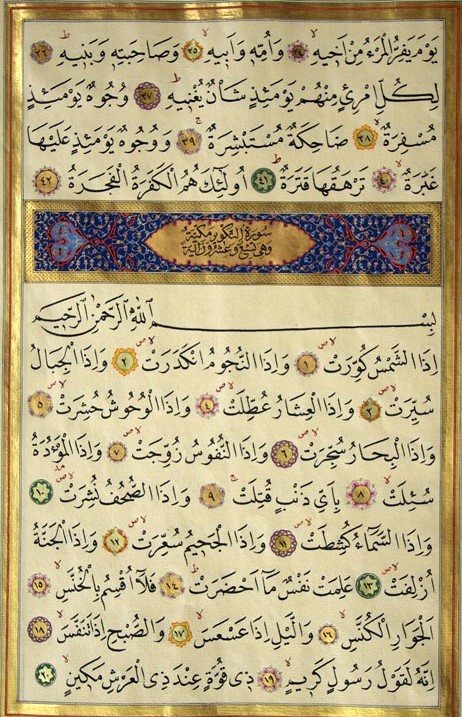 يَوْمَ يَفِرُّ الْمَرْءُ مِنْ اَخٖيهِ ﴿٣٤﴾ وَاُمِّهٖ وَاَبٖيهِ ﴿٣٥﴾ وَصَاحِبَتِهٖ وَبَنٖيهِ ﴿٣٦﴾
لِكُلِّ امْرِئٍ مِنْهُمْ يَوْمَئِذٍ شَأْنٌ يُغْنٖيهِ ﴿٣٧﴾ وُجُوهٌ يَوْمَئِذٍ
مُسْفِرَةٌ ﴿٣٨﴾ ضَاحِكَةٌ مُسْتَبْشِرَةٌ ﴿٣٩﴾ وَوُجُوهٌ يَوْمَئِذٍ عَلَيْهَا
غَبَرَةٌ ﴿٤٠﴾ تَرْهَقُهَا قَتَرَةٌ ﴿٤١﴾ اُولٰٓئِكَ هُمُ الْكَفَرَةُ الْفَجَرَةُ ﴿٤٢﴾
سورة التكوير مكية
وهي تسع وعشرون اية
بِسْمِ اللّٰهِ الرَّحْمٰنِ الرَّحٖيمِ
اِذَا الشَّمْسُ كُوِّرَتْ ﴿١﴾ وَاِذَا النُّجُومُ انْكَدَرَتْ ﴿٢﴾ وَاِذَا الْجِبَالُ
سُيِّرَتْ ﴿٣﴾ وَاِذَا الْعِشَارُ عُطِّلَتْ ﴿٤﴾ وَاِذَا الْوُحُوشُ حُشِرَتْ ﴿٥﴾
وَاِذَا الْبِحَارُ سُجِّرَتْ ﴿٦﴾ وَاِذَا النُّفُوسُ زُوِّجَتْ ﴿٧﴾ وَاِذَا الْمَوْءُدَةُ
سُئِلَتْ ﴿٨﴾ بِاَيِّ ذَنْبٍ قُتِلَتْ ﴿٩﴾ وَاِذَا الصُّحُفُ نُشِرَتْ ﴿١٠﴾
وَاِذَا السَّمَٓاءُ كُشِطَتْ ﴿١١﴾ وَاِذَا الْجَحٖيمُ سُعِّرَتْ ﴿١٢﴾ وَاِذَا الْجَنَّةُ
اُزْلِفَتْ ﴿١٣﴾ عَلِمَتْ نَفْسٌ مَٓا اَحْضَرَتْ ﴿١٤﴾ فَلَٓا اُقْسِمُ بِالْخُنَّسِ ﴿١٥﴾
الْجَوَارِ الْكُنَّسِ ﴿١٦﴾ وَالَّيْلِ اِذَا عَسْعَسَ ﴿١٧﴾ وَالصُّبْحِ اِذَا تَنَفَّسَ ﴿١٨﴾
اِنَّهُ لَقَوْلُ رَسُولٍ كَرٖيمٍ ﴿١٩﴾ ذٖي قُوَّةٍ عِنْدَ ذِي الْعَرْشِ مَكٖينٍ ﴿٢٠﴾